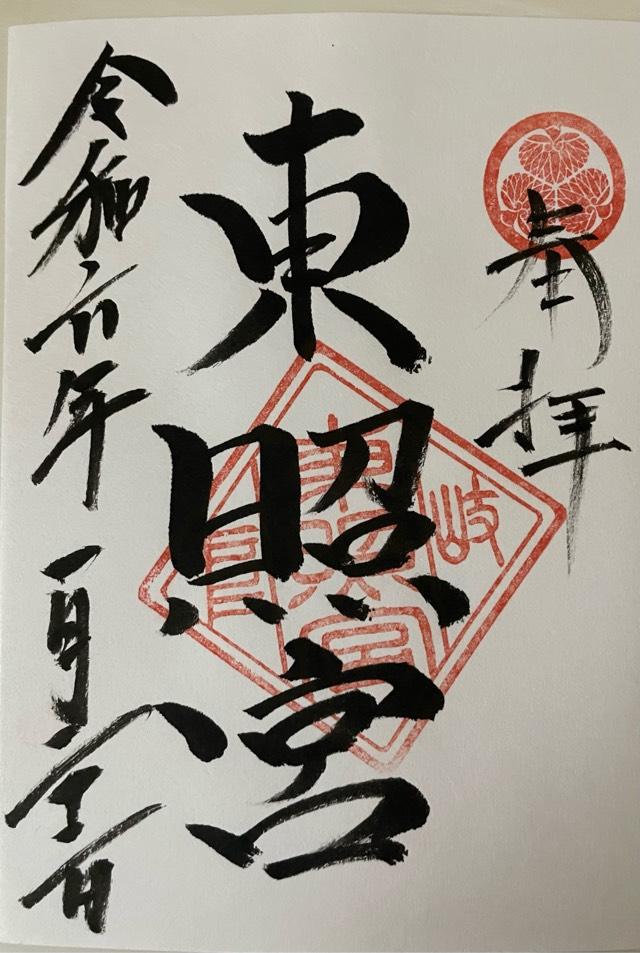 奉拝
東照宮
岐阜
東照宮
令和六年一月